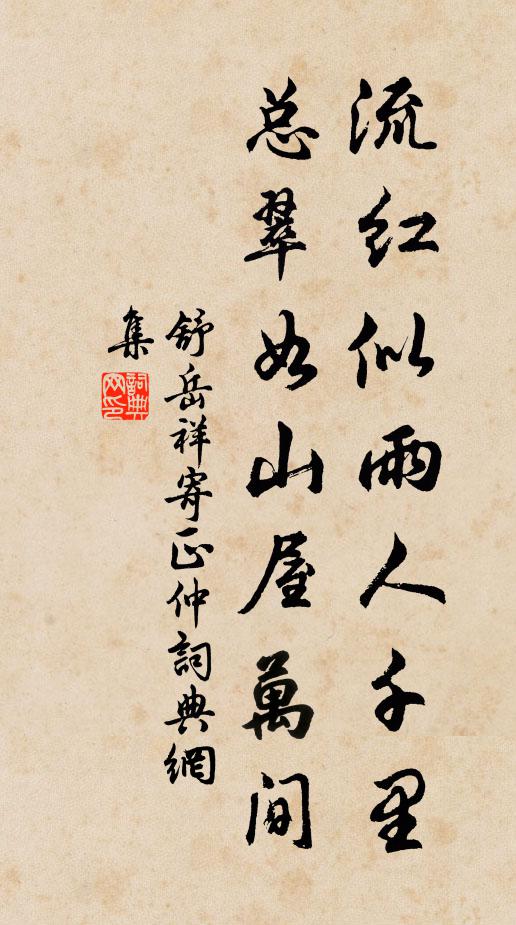 流红似雨人千里
总翠如山屋萬间
舒岳祥寄正仲詞典網
集
詞典网印